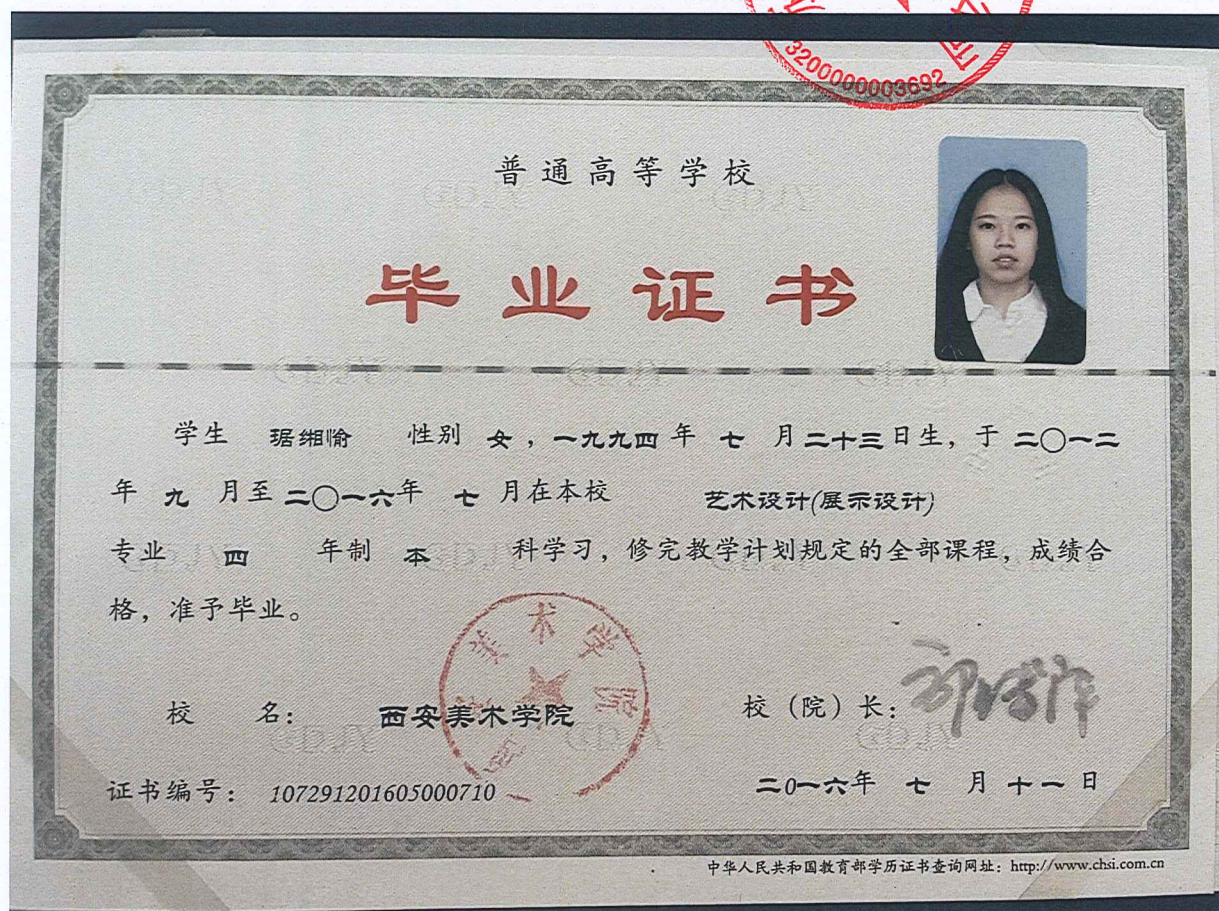 3200000003692
普通高等学校
毕业证书
学生 琚缃愉 性别 女，一九九四年 七 月二十三日生，于 二〇一二
年 九 月至 二〇一六年 七 月在本校 艺术设计(展示设计)
专业 四 年制 本 科学习，修完教学计划规定的全部课程，成绩合
格，准予毕业。
美术学院
校 名： 西安美术学院 校（院）长：
证书编号： 107291201605000710 二0一六年 七 月 十一 日
中华人民共和国教育部学历证书查询网址：http://www.chsi.com.cn